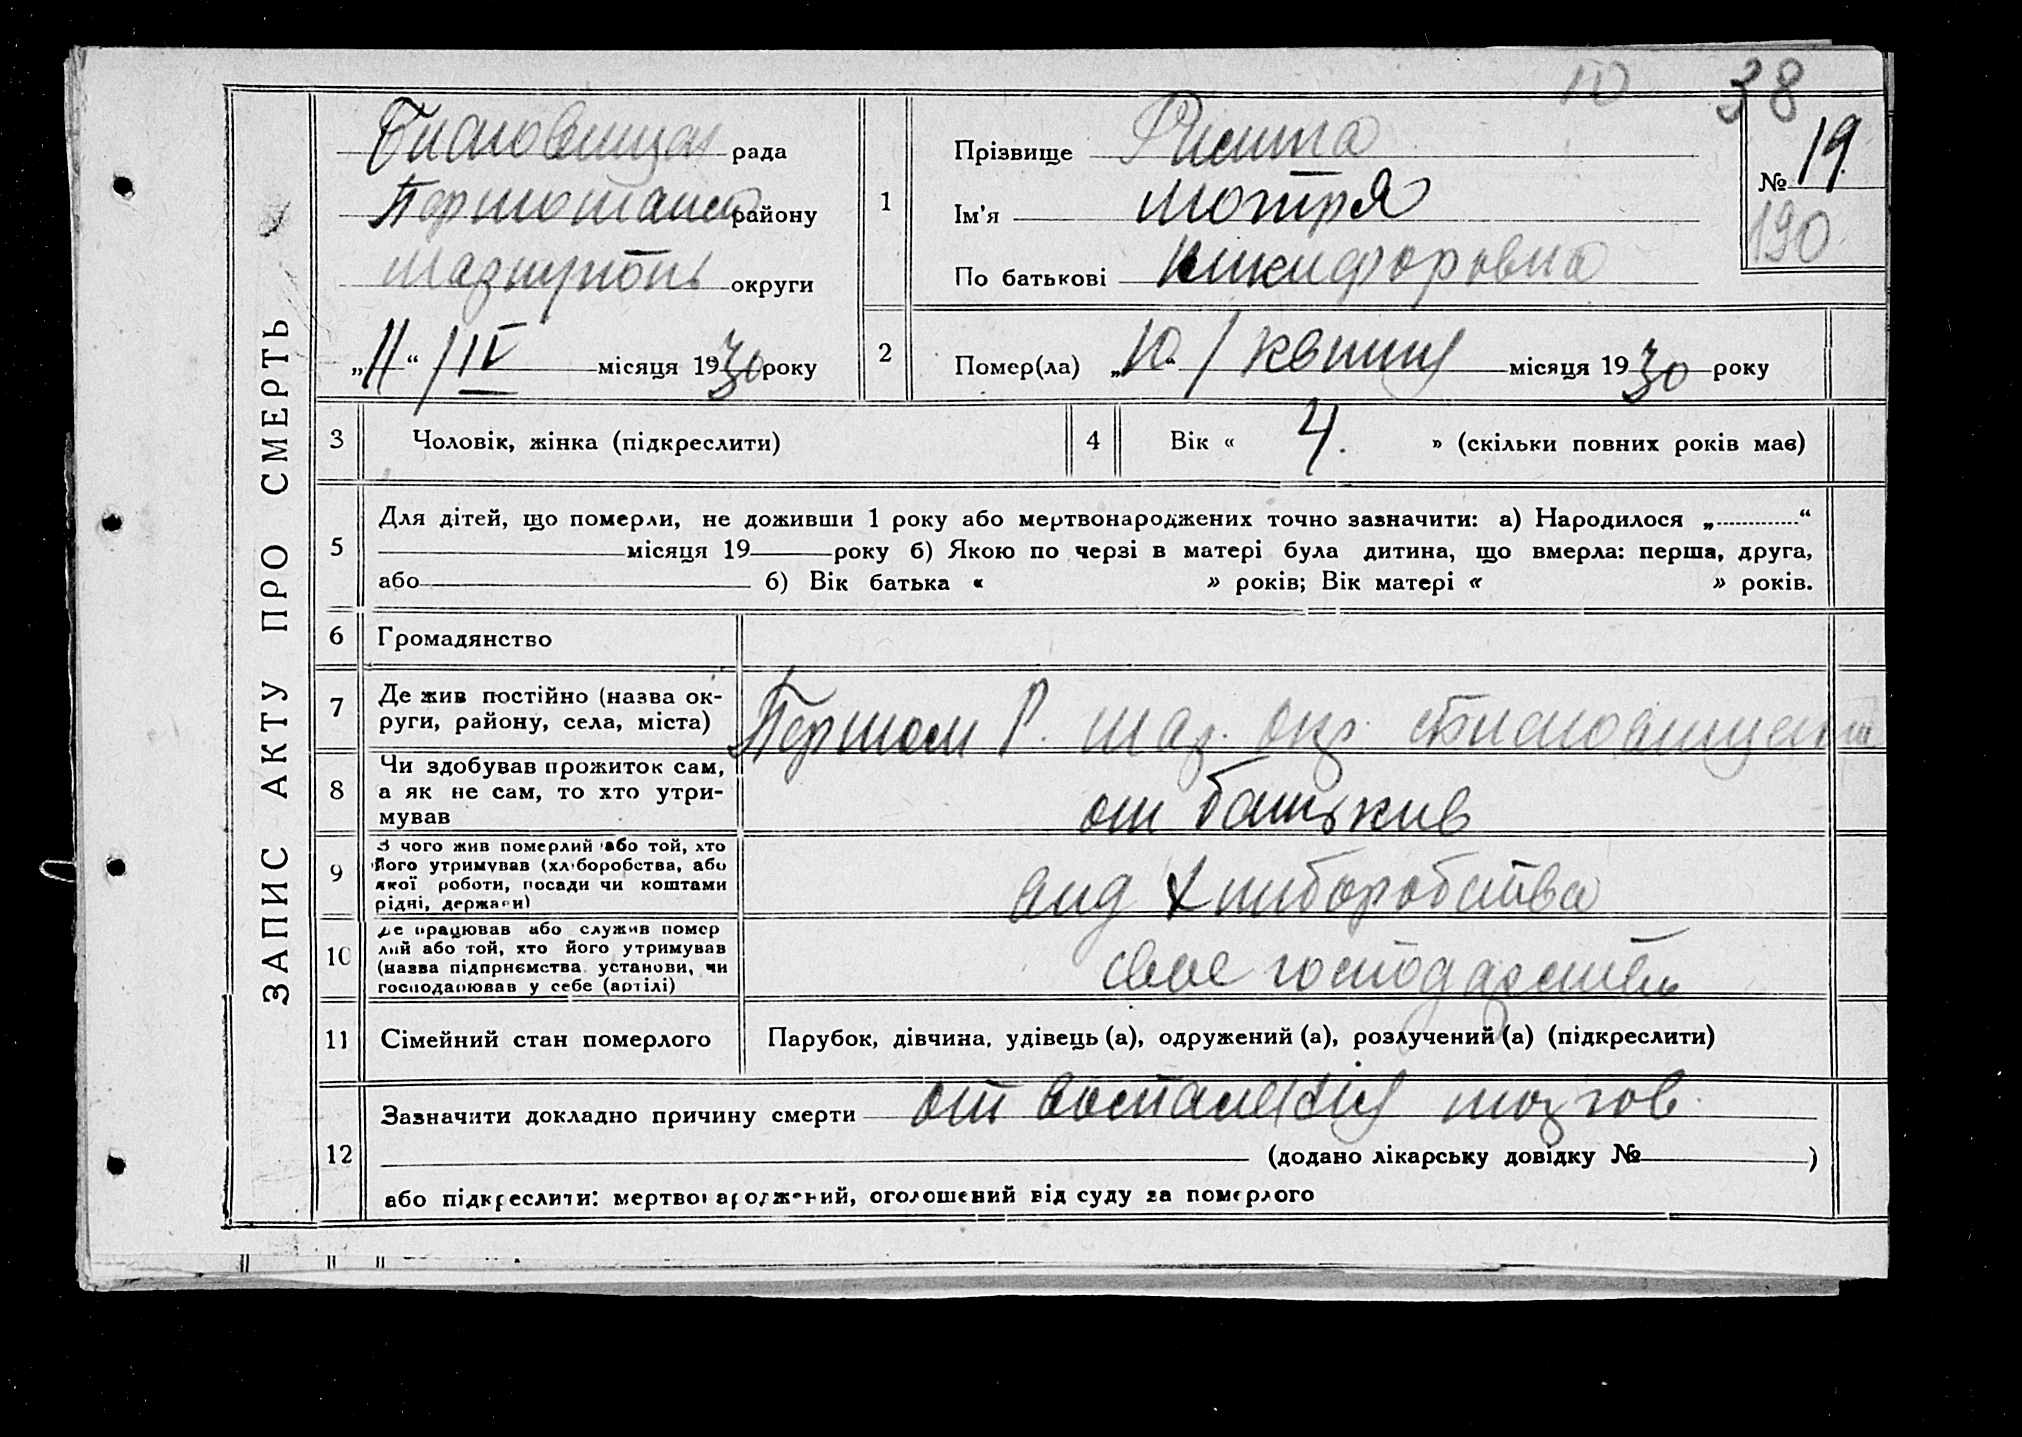 38
ЗАПИС АКТУ ПРО СМЕРТЬ
рада
району
округи
„11“ / IV місяця 1930 року
1
Прізвище
Ім'я Мотря
По батькові Никифоровна
№ 19.
190
2
Помер(ла) „10“ / квитня місяця 1930 року
3 Чоловік, жінка (підкреслити)
4 Вік « 4. » (скільки повних років має)
5
Для дітей, що померли, не доживши 1 року або мертвонароджених точно зазначити: а) Народилося „ “
місяця 19 року б) Якою по черзі в матері була дитина, що вмерла: перша, друга,
або б) Вік батька « » років; Вік матері « » років.
6 Громадянство
7
Де жив постійно (назва ок-
руги, району, села, міста)
Р. окр.
8
Чи здобував прожиток сам,
а як не сам, то хто утри-
мував
от батькив
9
З чого жив померлий або той, хто
його утримував (хліборобства, або
якої роботи, посади чи коштами
рідні, держави)
вид хлиборобства
10
Де працював або служив помер
лий або той, хто його утримував
(назва підприємства, установи, чи
господарював у себе (артілі)
свое
11 Сімейний стан померлого
Парубок, дівчина, удівець (а), одружений (а), розлучений (а) (підкреслити)
12
Зазначити докладно причину смерти от воспаления мозгов.
(додано лікарську довідку № )
або підкреслити: мертвонароджений, оголошений від суду за померлого